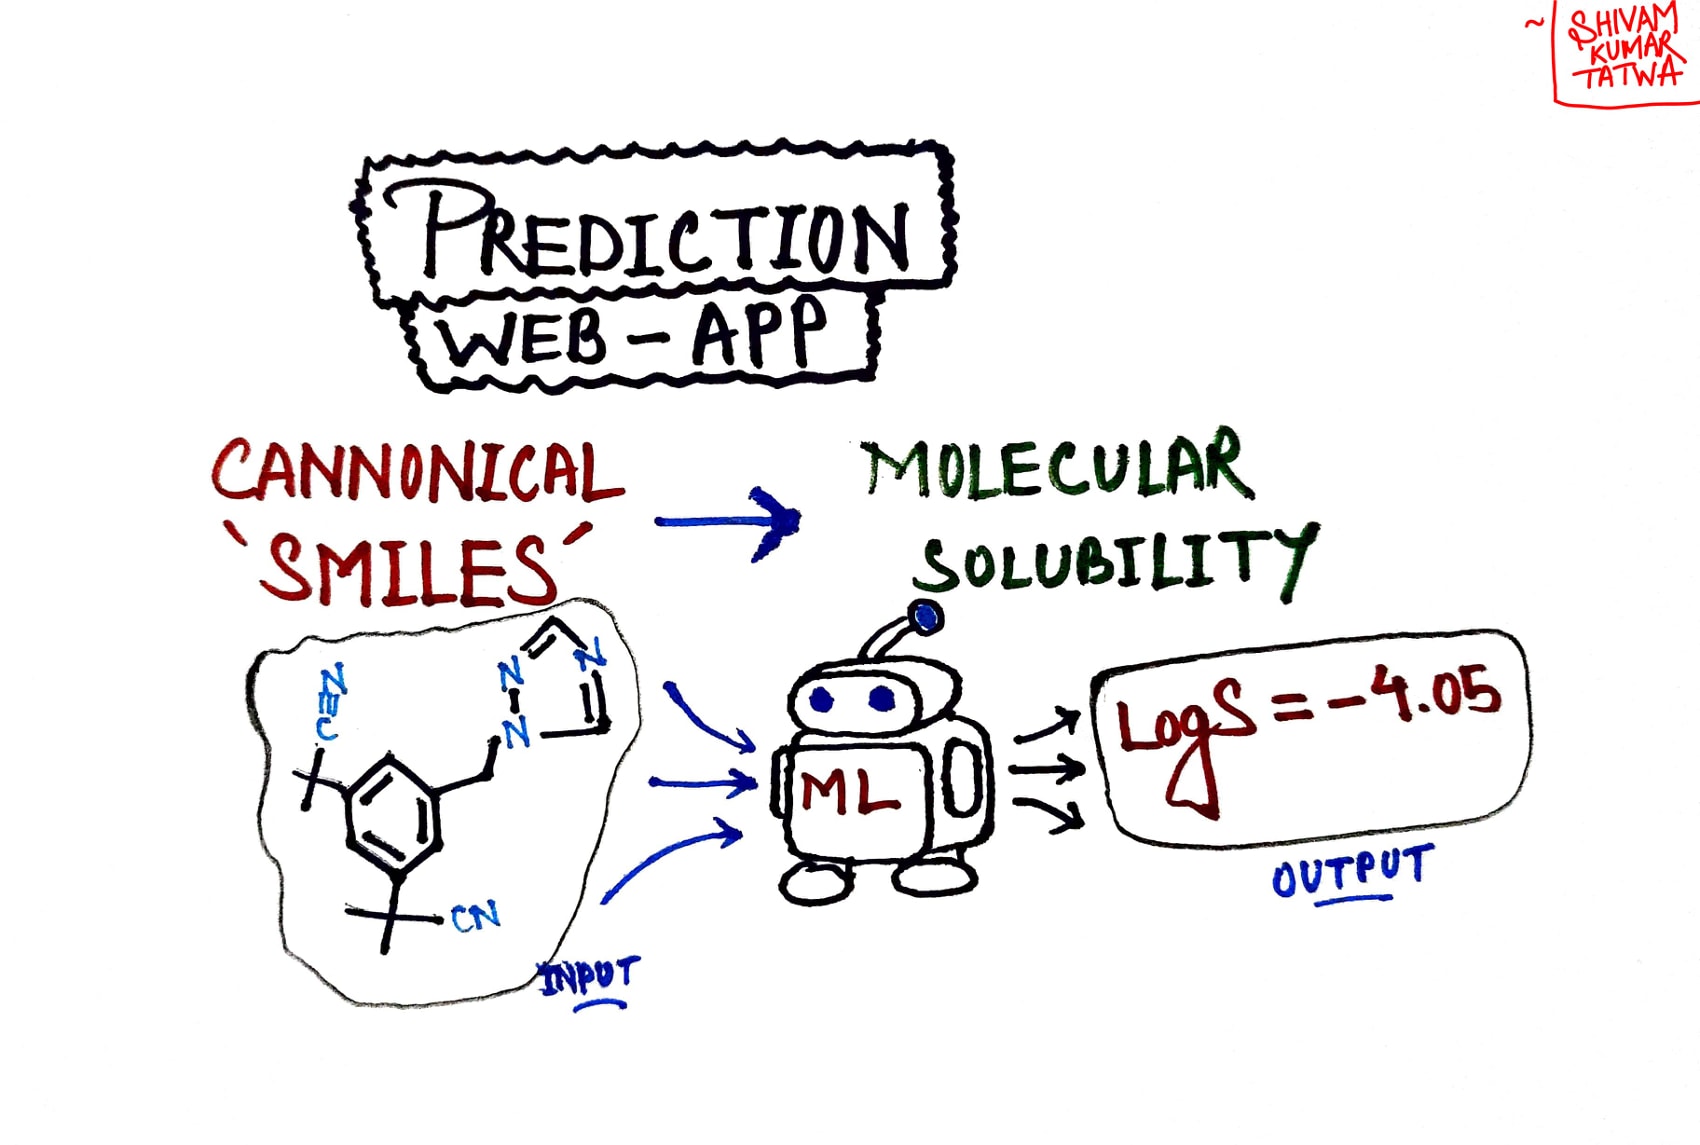 ~ SHIVAM
KUMAR
TATWA
PREDICTION
WEB-APP
CANNONICAL
`SMILES´
MOLECULAR
SOLUBILITY
N
≡
C
N
N
N
CN
ML
LogS = -4.05
INPUT
OUTPUT